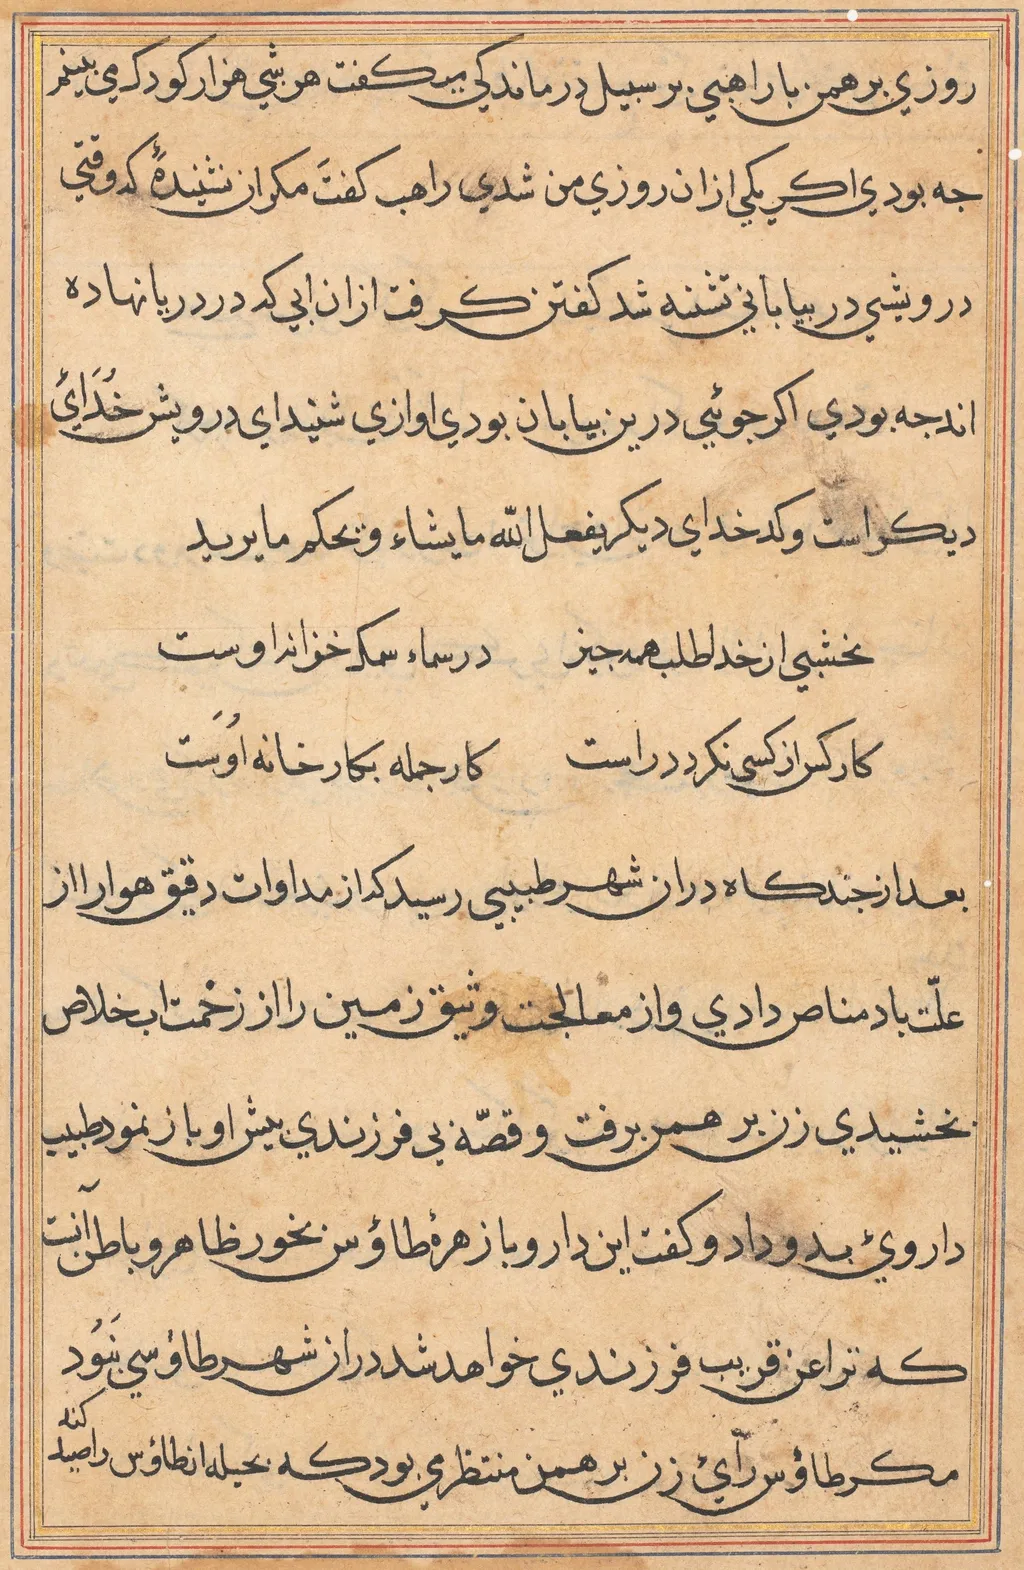 روزي برهمن با راهبي بر سبيل درماندكي ميكفت هر شبي هزار كودك مي بينم
جه بودي اكر يكي ازان روزي من شدي راهب كفت مكر ان نشنيدۀ كه وقتي
درويشي در بياباني تشنه شد كفتن كرفت ازان ابي كه در دريا نهاده
اند جه بودي اكر جوئي درين بيابان بودي اوازي شنيد اي درويش خُدَائ
ديكر است وكدخداي ديكر يفعل اللّه ما يشاء و يحكم ما يريد
نخشبي از خدا طلب همه جيز در سماء سمك خواند اوست
كار كس از كسي نكردد راست كار جمله بكار خانه اوُست
بعد از جند كاه دران شهر طبيبي رسيد كه از مداوات دقيق هوا را از
علّت باد مناص دادي و از معالجت وثيق زمين را از زحْمت اب خلاص
بخشيدي زن برهمن برفت و قصّۀ بي فرزندي بيش او باز نمود طبيب
داروئ بدو داد و كفت اين دارو با زهرۀ طاؤس بخور ظاهر و باطن آنست
كه ترا عن قريب فرزندي خواهد شد دران شهر طاؤسي نَبُود
مكر طاؤس رآئ زن برهمن منتظر مي بود كه بحيله ان طاؤس را صيد
كند